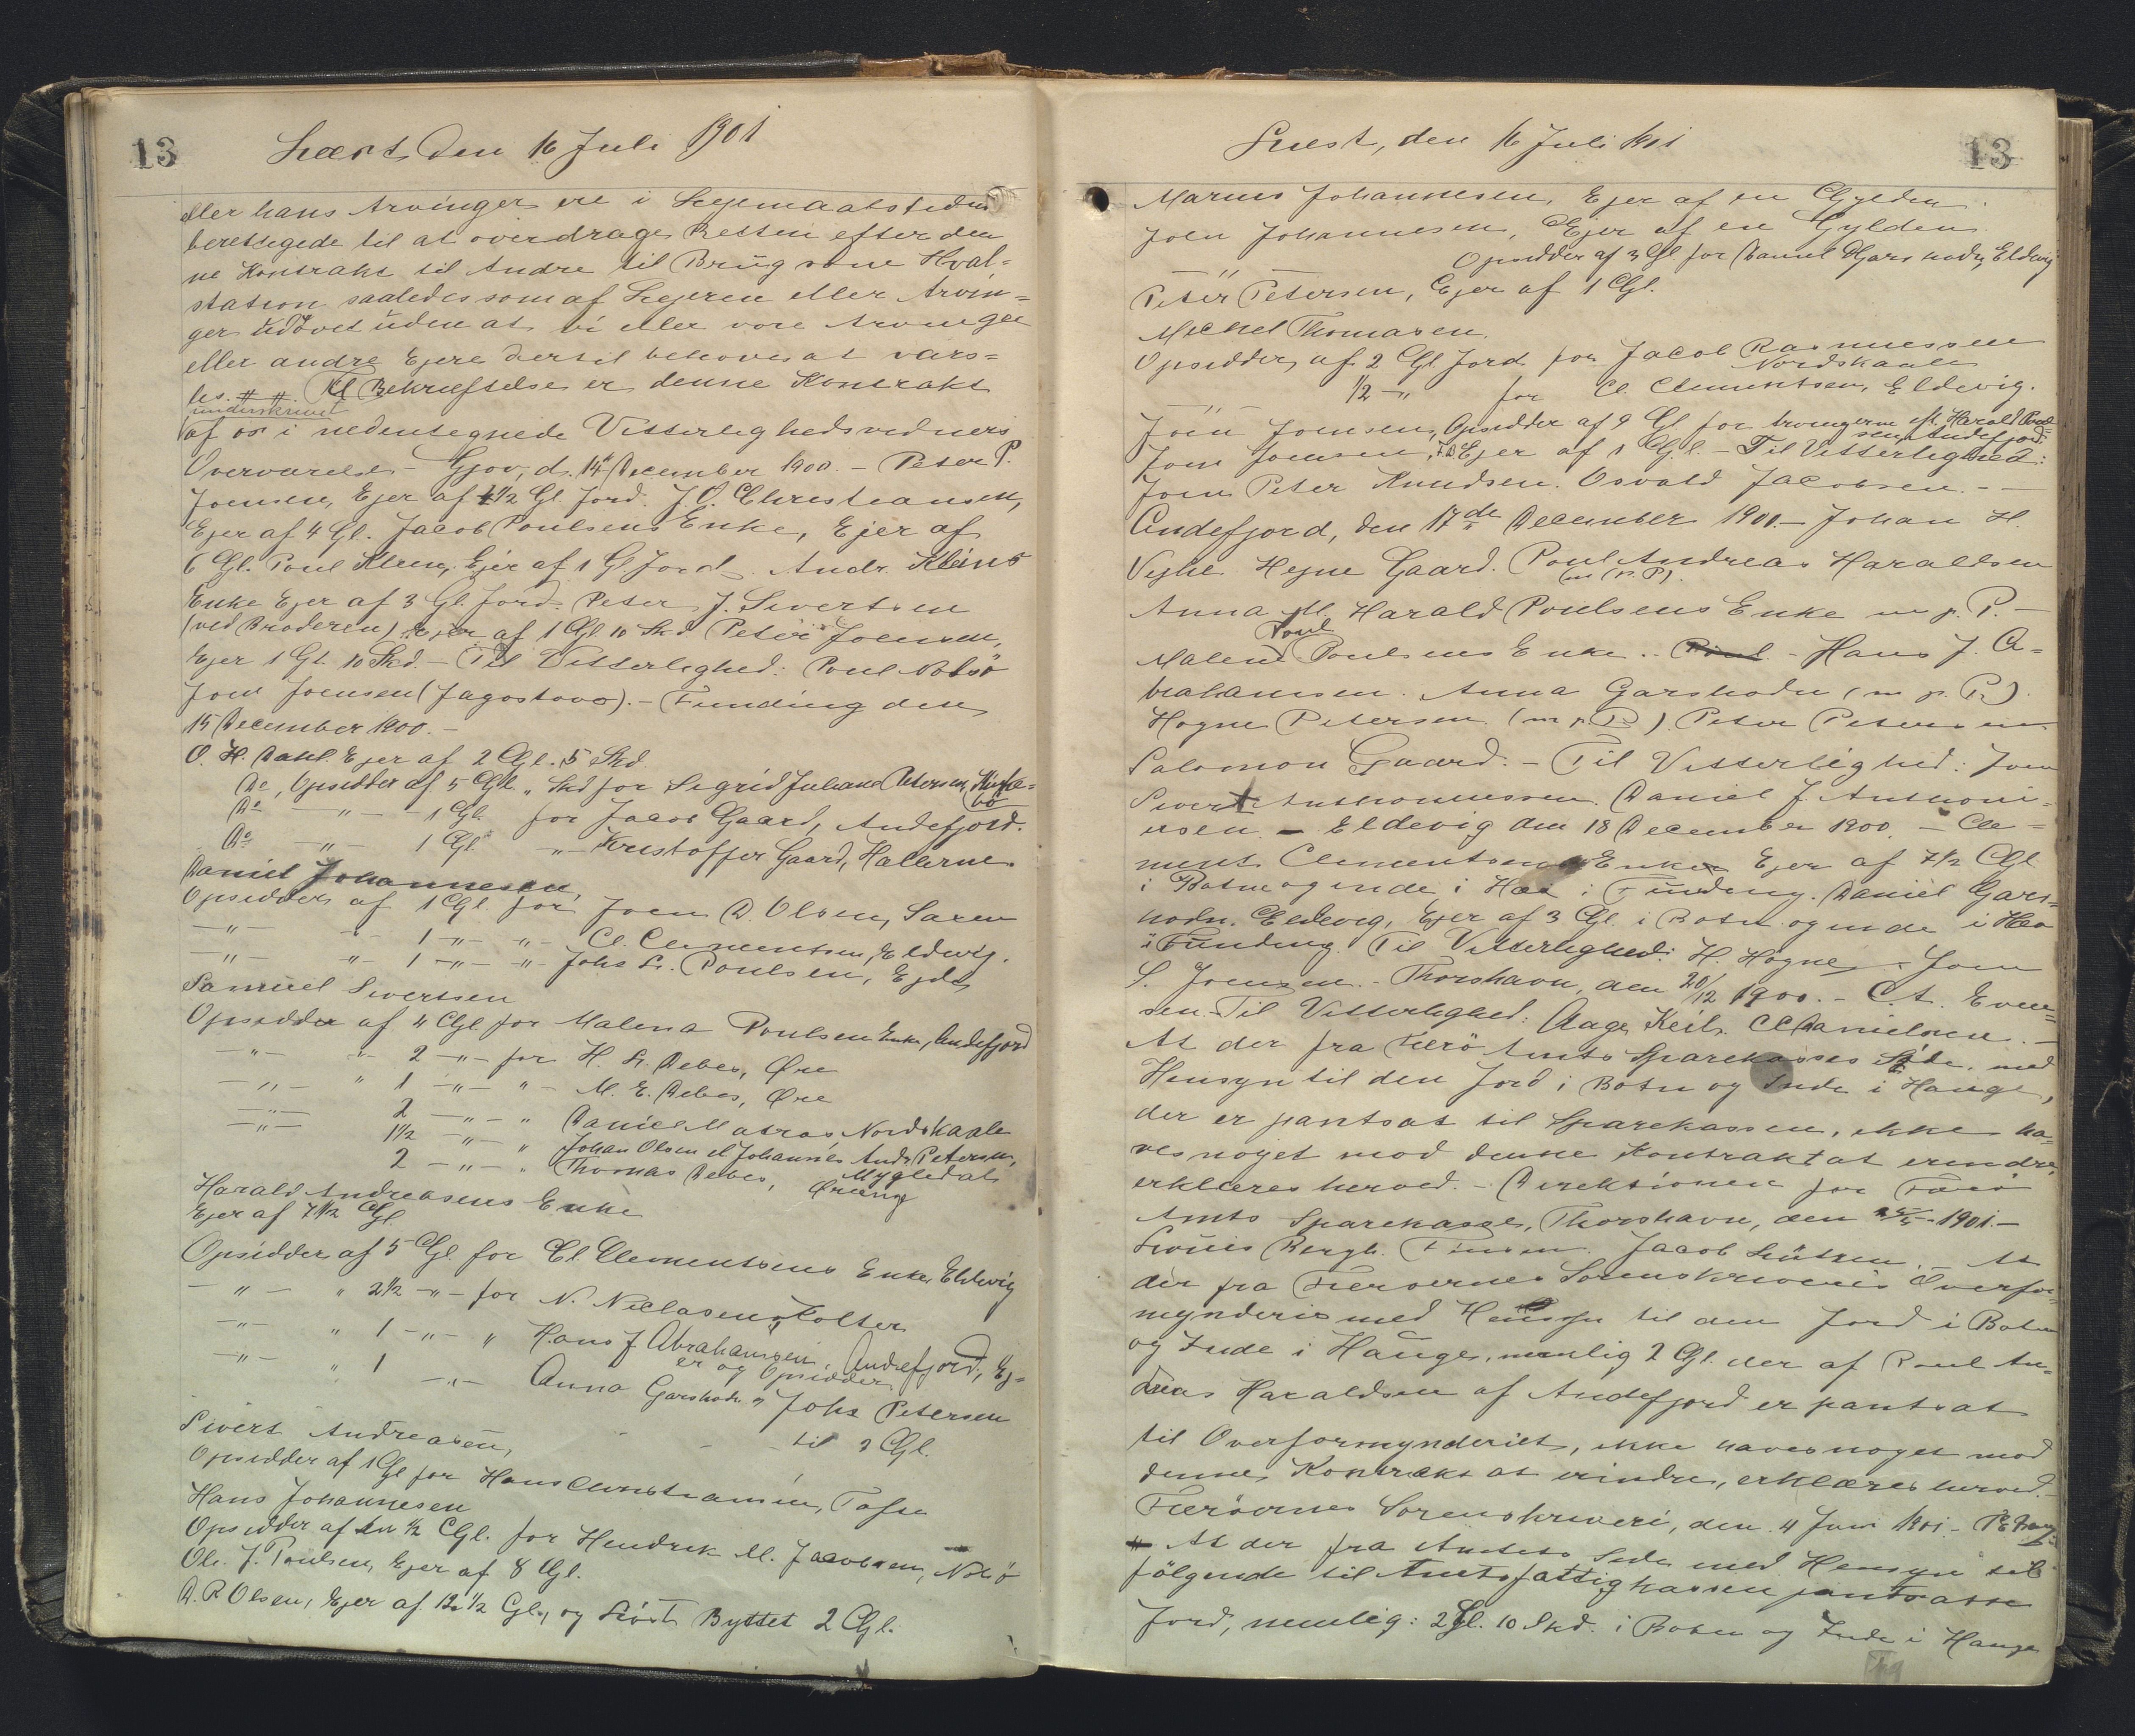 13
Den 16 Juli 1901
eller hans Arvinger ere i Lejemaalstiden
berettigede til at overdrage Retten efter den
ne Kontrakt til Andre til Brug som Hval-
station saaledes som af Lejeren eller Arvin-
ger udövet uden at vi eller vore Arvinger
eller andre Ejere dertil behøves at vars-
les. Til Bekræftelse er denne Kontrakt
underskrevet
af os i nedentegnede Vitterlighedsvidners
Overværelse. - Gjov, d. 14 December 1900. - Peter P.
Joensen, Ejer af 1½ Gl. Jord. J. O. Christiansen,
Ejer af 4 Gl. Jacob Poulsens Enke, Ejer af
6 Gl. Poul Klein, Ejer af 1 Gl. Jord. Andr. Kleins
Enke Ejer af 3 Gl. Jord. Peter J. Sivertsen
(ved Broderen) Ejer af 1 Gl 10 Skd. Peter Joensen,
Ejer 1 Gl. 10 Skd. - Til Vitterlighed: Poul Nolsö
Joen Joensen (Jagostovo). - Funding den
15 December 1900. -
O. H. Dahl Ejer af 2 Gl. 5 Skd.
Do, Opsidder af 5 Gl. " Skd for Sigrid Juliane Petersen,
Do -"- 1 Gl. for Jacob Gaard, Andefjord.
Do -"- 1 Gl. -"- Kristoffer Gaard, Hallerne
Daniel Johannesen,
Opsidder af 1 Gl. for Joen D. Olsen, Saxen
-"- -"- 1 -"- -"- Cl. Clementsen, Eldevig.
-"- -"- 1 -"- -"- Johs Sr. Poulsen, Ejde
Samuel Sivertsen
Opsidder af 4 Gl. for Malena Poulsens Enke, Andefjord
-"- -"- 2 -"- for H. Sr. Debes, Øre
-"- " 1 -"- " - M. E. Debes, Øre
-"- 2 -"- " Daniel Matras, Nordskaale
-"- 1½ -"- " Johan Olsen el Johannes Andr Petersen,
Mygledal
2 -"- " Thomas Debes, Öreeng
Harald Andreasens Enke
Ejer af 7½ Gl.
Opsidder af 5 Gl for Cl. Clementsens Enke, Eldevig
-"- " 2½ -"- for N. Niclasen, Kolter
-"- " 1 -"- " Hans J Abrahamsen, Andefjord, Ej-
er og Opsidder
-"- " 1 -"- Anna Garshodn og Johs Petersen
til 2 Gl.
Sivert Andreasen,
Opsidder af 1 Gl for Hans Christiansen,
Hans Johannesen
Opsidder af ½ Gl. for Hendrik M. Jacobsen, Nolsö
Ole J. Poulsen, Ejer af 8 Gl.
D. P. Olsen, Ejer af 12½ Gl., og Byttet 2 Gl.
13
den 16 Juli 1901
Marius Johannesen, Ejer af en Gylden.
Joen Johannesen, Ejer af en Gylden.
-"- Opsidder af 3 Gl for Daniel Garshodn, Eldevig
Peter Petersen, Ejer af 1 Gl.
Michel Thomasen.
Opsidder af 2 Gl Jord for Jacob Rasmussen
Nordskaale
-"- ½ -"- for Cl. Clementsen, Eldevig.
Joen Joensen, Opsidder af 9 Gl for Arvingerne eft. Harald Poul-
sen, Andefjord.
Joen Joensen, Ejer af 1 Gl. - Til Vitterlighed:
Joen Peter Knudsen. Osvald Jacobsen. -
Andefjord, den 17de December 1900. - Johan H.
Vejhe. Hejne Gaard. Poul Andreas Haraldsen
(m. p. P).
Anna M. Harald Poulsens Enke m p. P. -
Poul
Malene Poulsens Enke. - Hans J. A-
brahamsen. Anna Garshodn (m p. P.)
Hogne Petersen (m p. P.) Peter Petersen
Salomon Gaard. - Til Vitterlighed: Joen
Sivert Anthoniussen. Daniel J. Anthoni-
usen. - Eldevig den 18 December 1900. - Cle-
ment Clementsens Enke Ejer af 7½ Gl.
i Botne og inde i Hea i Funding. Daniel Gars-
hodn. Eldevig, Ejer af 3 Gl. i Botn og inde i Hea
i Funding. Til Vitterlighed: H. Högnesen. Joen
S. Joensen. - Thorshavn, den 20/12 1900. - C. A. Even-
sen. - Til Vitterlighed: Aage Keil. C C Danielsen. -
At der fra Færö Amts Sparekasses Side, med
Hensyn til den Jord i Botn og Inde i Hauge,
der er pantsat til Sparekassen, ikke ha-
ves noget mod denne Kontrakt at erindre,
erklæres herved. - Direktionen for Færö
Amts Sparekasse, Thorshavn, den 1901. -
Louis Bergh. Finsen. Jacob Lützen. - At
der fra Færøernes Sorenskriveris Overfor-
mynderie med Hensyn til den Jord i Botn
og Inde i Hauge, nemlig 2 Gl. der af Poul An-
dreas Haraldsen af Andefjord er pantsat
til Overformynderiet, ikke haves noget mod
denne Kontrakt at erindre, erklæres herved. -
Færöernes Sorenskriveri, den 4 Juni 1901. -
At der fra Amtets Side med Hensyn til
følgende til Amtsfattigkassen pantsatte
Jord, nemlig: 2 Gl. 10 Skd. i Botn og Inde i Hauge